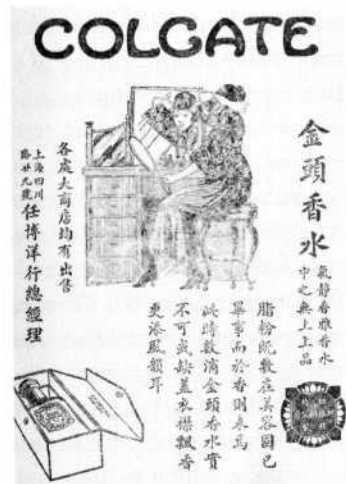 COLGATE
金頭香水
氣靜香雅香水
中之無上上品
脂粉既敷在美容固已
畢事而於香則未焉
此時數滴金頭香水實
不可或缺蓋衣襟飄香
更添風韻耳
各處大商店均有出售
上海四川
路廿九號
任博洋行總經理